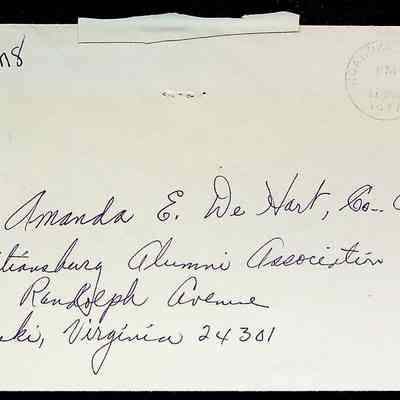 Amanda E. De Hart, Co-
tiansburg Alumni Association
Randolph Avenue
ski, Virginia 24301